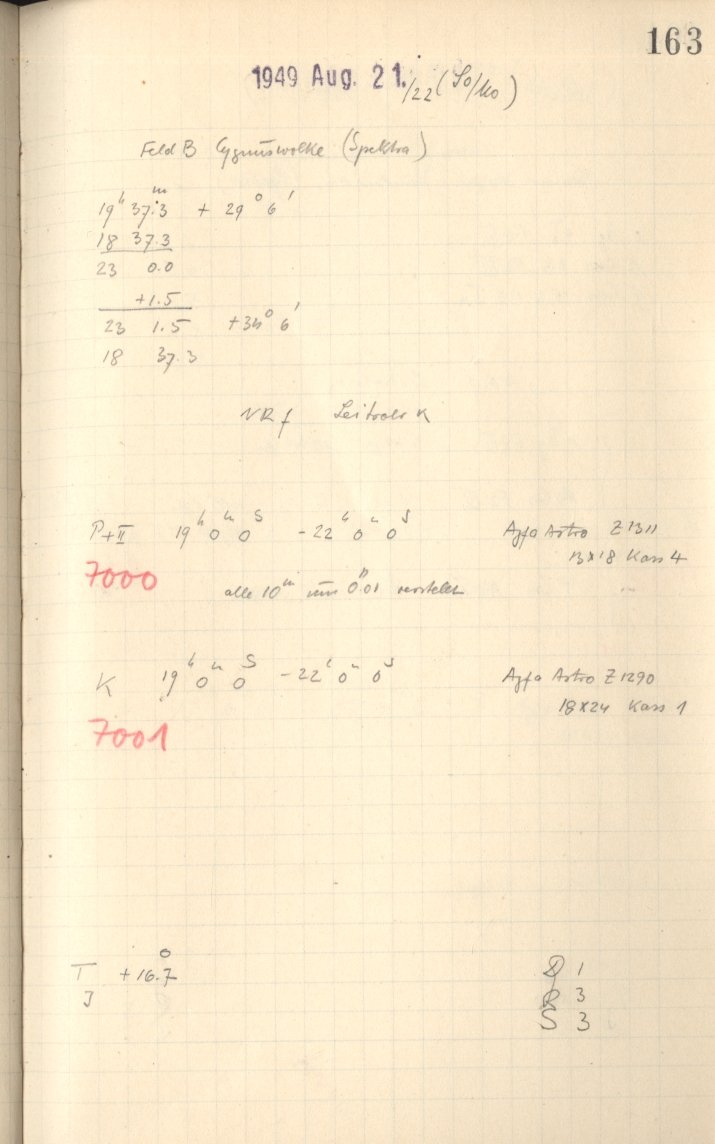 163
1949 Aug. 21./22 (So/Mo)
Feld B Cygnuswolke (Spektra)
19ʰ 37.3ᵐ + 29° 6'
18 37.3
23 0.0
+1.5
23 1.5 +34° 6'
18 37.3
NR f Leitrohr K
P+II 19ʰ 0ᵐ 0ˢ - 22ʰ 0ᵐ 0ˢ Agfa Astro Z 1311
13x18 Kass 4
7000 alle 10ᵐ um 0.01 verstellt
K 19ʰ 0ᵐ 0ˢ - 22ʰ 0ᵐ 0ˢ Agfa Astro Z 1290
18x24 Kass 1
7001
T + 16.7° D 1
J R 3
S 3